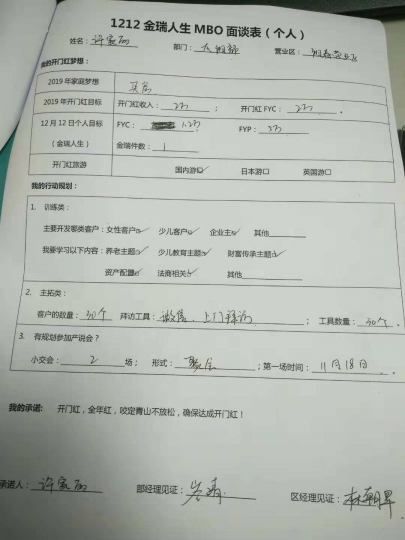 1212金瑞人生MBO面谈表（个人）
姓名： 部门： 营业区：
我的开门红梦想：
2019年家庭梦想
2019年开门红目标 开门红收入： 2万 ； 开门红FYC： 2万 。
12月12日个人目标（金瑞人生） FYC： 1.2万 FYP： 3万
金瑞件数： 1
开门红旅游 国内游□✓ 日本游□ 英国游□
我的行动规划：
1. 训练类：
主要开发哪类客户：女性客户□✓ 少儿客户□✓ 企业主□✓ 其他
我要学习以下内容：养老主题□✓ 少儿教育主题□✓ 财富传承主题□✓
资产配置□✓ 法商相关□✓ 其他
2. 主拓类：
客户的数量： 30个 拜访工具： 上门拜访 ； 工具数量： 30个 。
3. 有规划参加产说会？
小交会： 2 场； 形式： ；第一场时间： 11月18日 。
我的承诺： 开门红，全年红，咬定青山不放松，确保达成开门红！
承诺人： 部经理见证： 区经理见证：